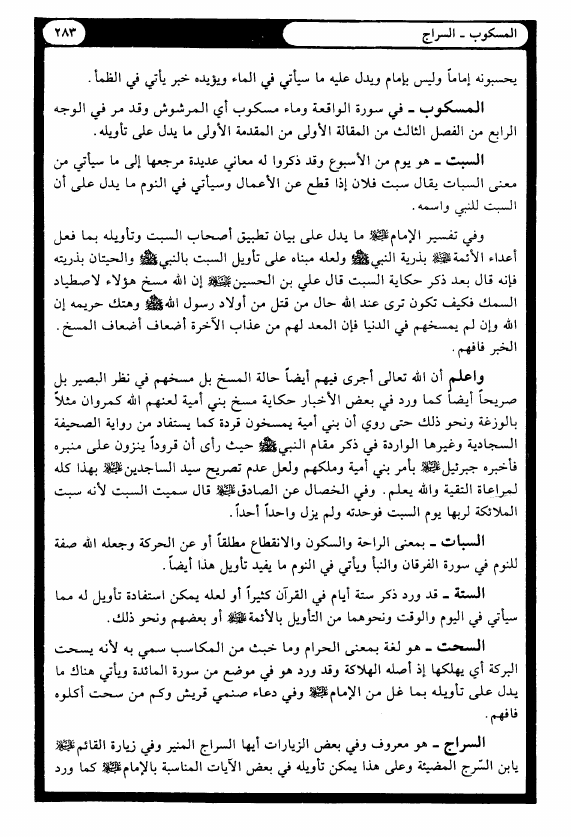 المسكوب ـ السراج
٢٨٣
يحسبونه إماماً وليس بإمام ويدل عليه ما سيأتي في الماء ويؤيده خبر يأتي في الظمأ.
المسكوب ـ في سورة الواقعة وماء مسكوب أي المرشوش وقد مر في الوجه
الرابع من الفصل الثالث من المقالة الأولى من المقدمة الأولى ما يدل على تأويله.
السبت ـ هو يوم من الأسبوع وقد ذكروا له معاني عديدة مرجعها إلى ما سيأتي من
معنى السبات يقال سبت فلان إذا قطع عن الأعمال وسيأتي في النوم ما يدل على أن
السبت للنبي واسمه.
وفي تفسير الإمام ما يدل على بيان تطبيق أصحاب السبت وتأويله بما فعل
أعداء الأئمة بذرية النبي ﷺ ولعله مبناه على تأويل السبت بالنبي ﷺ والحيتان بذريته
فإنه قال بعد ذكر حكاية السبت قال علي بن الحسين إن الله مسخ هؤلاء لاصطياد
السمك فكيف تكون ترى عند الله حال من قتل من أولاد رسول الله ﷺ وهتك حريمه إن
الله وإن لم يمسخهم في الدنيا فإن المعد لهم من عذاب الآخرة أضعاف أضعاف المسخ.
الخبر فافهم.
واعلم أن الله تعالى أجرى فيهم أيضاً حالة المسخ بل مسخهم في نظر البصير بل
صريحاً أيضاً كما ورد في بعض الأخبار حكاية مسخ بني أمية لعنهم الله كمروان مثلاً
بالوزغة ونحو ذلك حتى روي أن بني أمية يمسخون قردة كما يستفاد من رواية الصحيفة
السجادية وغيرها الواردة في ذكر مقام النبي ﷺ حيث رأى أن قروداً ينزون على منبره
فأخبره جبرئيل بأمر بني أمية وملكهم ولعل عدم تصريح سيد الساجدين بهذا كله
لمراعاة التقية والله يعلم. وفي الخصال عن الصادق قال سميت السبت لأنه سبت
الملائكة لربها يوم السبت فوحدته ولم يزل واحداً أحداً.
السبات ـ بمعنى الراحة والسكون والانقطاع مطلقاً أو عن الحركة وجعله الله صفة
للنوم في سورة الفرقان والنبأ ويأتي في النوم ما يفيد تأويل هذا أيضاً.
الستة ـ قد ورد ذكر ستة أيام في القرآن كثيراً أو لعله يمكن استفادة تأويل له مما
سيأتي في اليوم والوقت ونحوهما من التأويل بالأئمة أو بعضهم ونحو ذلك.
السحت ـ هو لغة بمعنى الحرام وما خبث من المكاسب سمي به لأنه يسحت
البركة أي يهلكها إذ أصله الهلاكة وقد ورد هو في موضع من سورة المائدة ويأتي هناك ما
يدل على تأويله بما غل من الإمام وفي دعاء صنمي قريش وكم من سحت أكلوه
فافهم.
السراج ـ هو معروف وفي بعض الزيارات أيها السراج المنير وفي زيارة القائم
يابن السّرج المضيئة وعلى هذا يمكن تأويله في بعض الآيات المناسبة بالإمام كما ورد